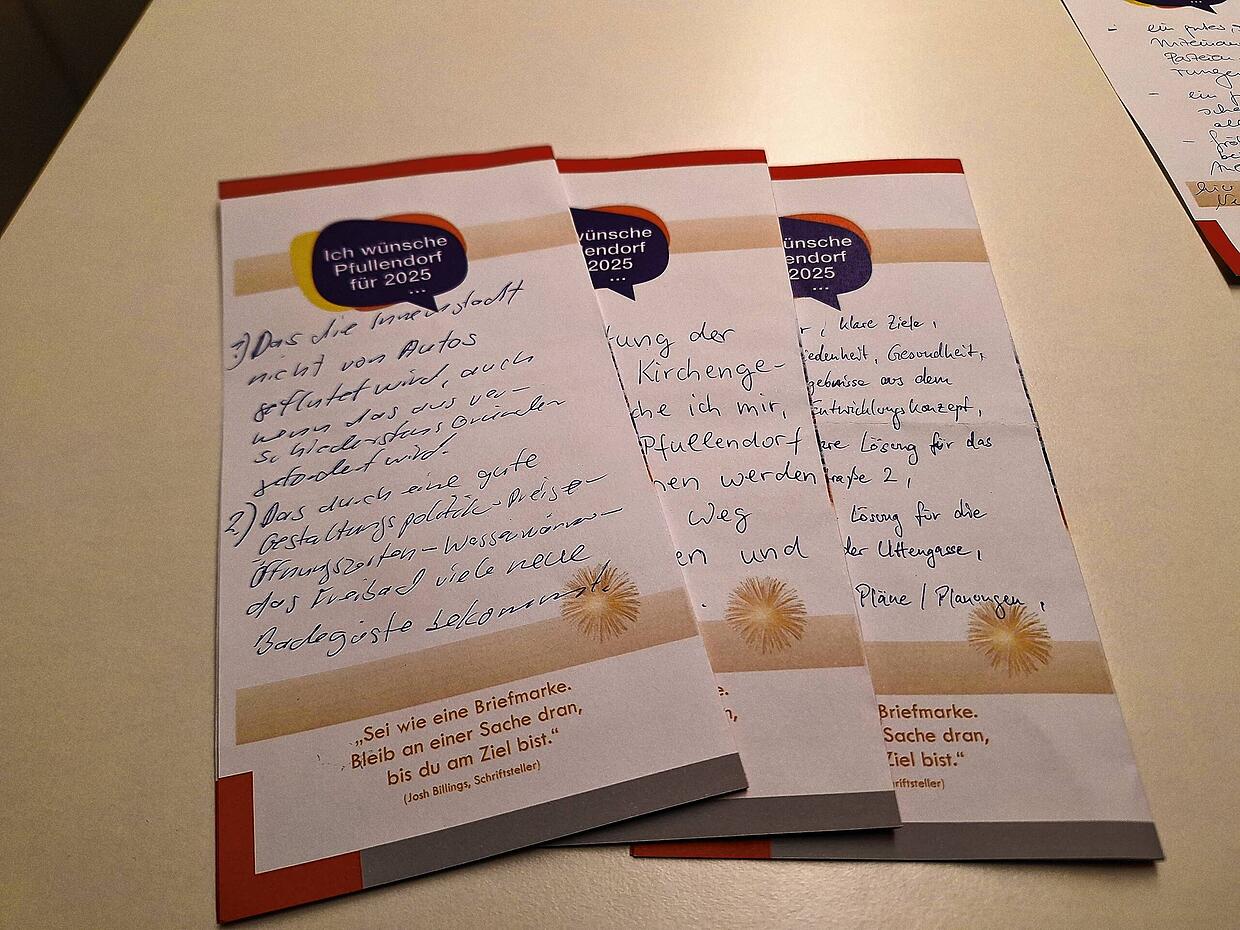 Ich wünsche
Pfullendorf
für 2025
...
1) Das die Innenstadt
nicht von Autos
geflutet wird, auch
wenn das aus ver-
schiedenstens Gründen
gefordert wird.
2) Das durch eine gute
Gestaltungspolitik - Preise -
Öffnungszeiten - Wasserwärme -
das Freibad viele neue
Badegäste bekommt.
„Sei wie eine Briefmarke.
Bleib an einer Sache dran,
bis du am Ziel bist.“
(Josh Billings, Schriftsteller)
wünsche
endorf
2025
...
tung der
Kirchenge-
che ich mir,
Pfullendorf
hen werden
Weg
en und
e.
n,
ünsche
endorf
2025
...
r, klare Ziele,
iedenheit, Gesundheit,
gebnisse aus dem
Entwicklungskonzept,
are Lösung für das
raße 2,
Lösung für die
der Uttengasse,
Pläne / Planungen,
Briefmarke.
Sache dran,
Ziel bist.“
riftsteller)
- ein gutes
Miteinan
Parteien
tungen
- ein